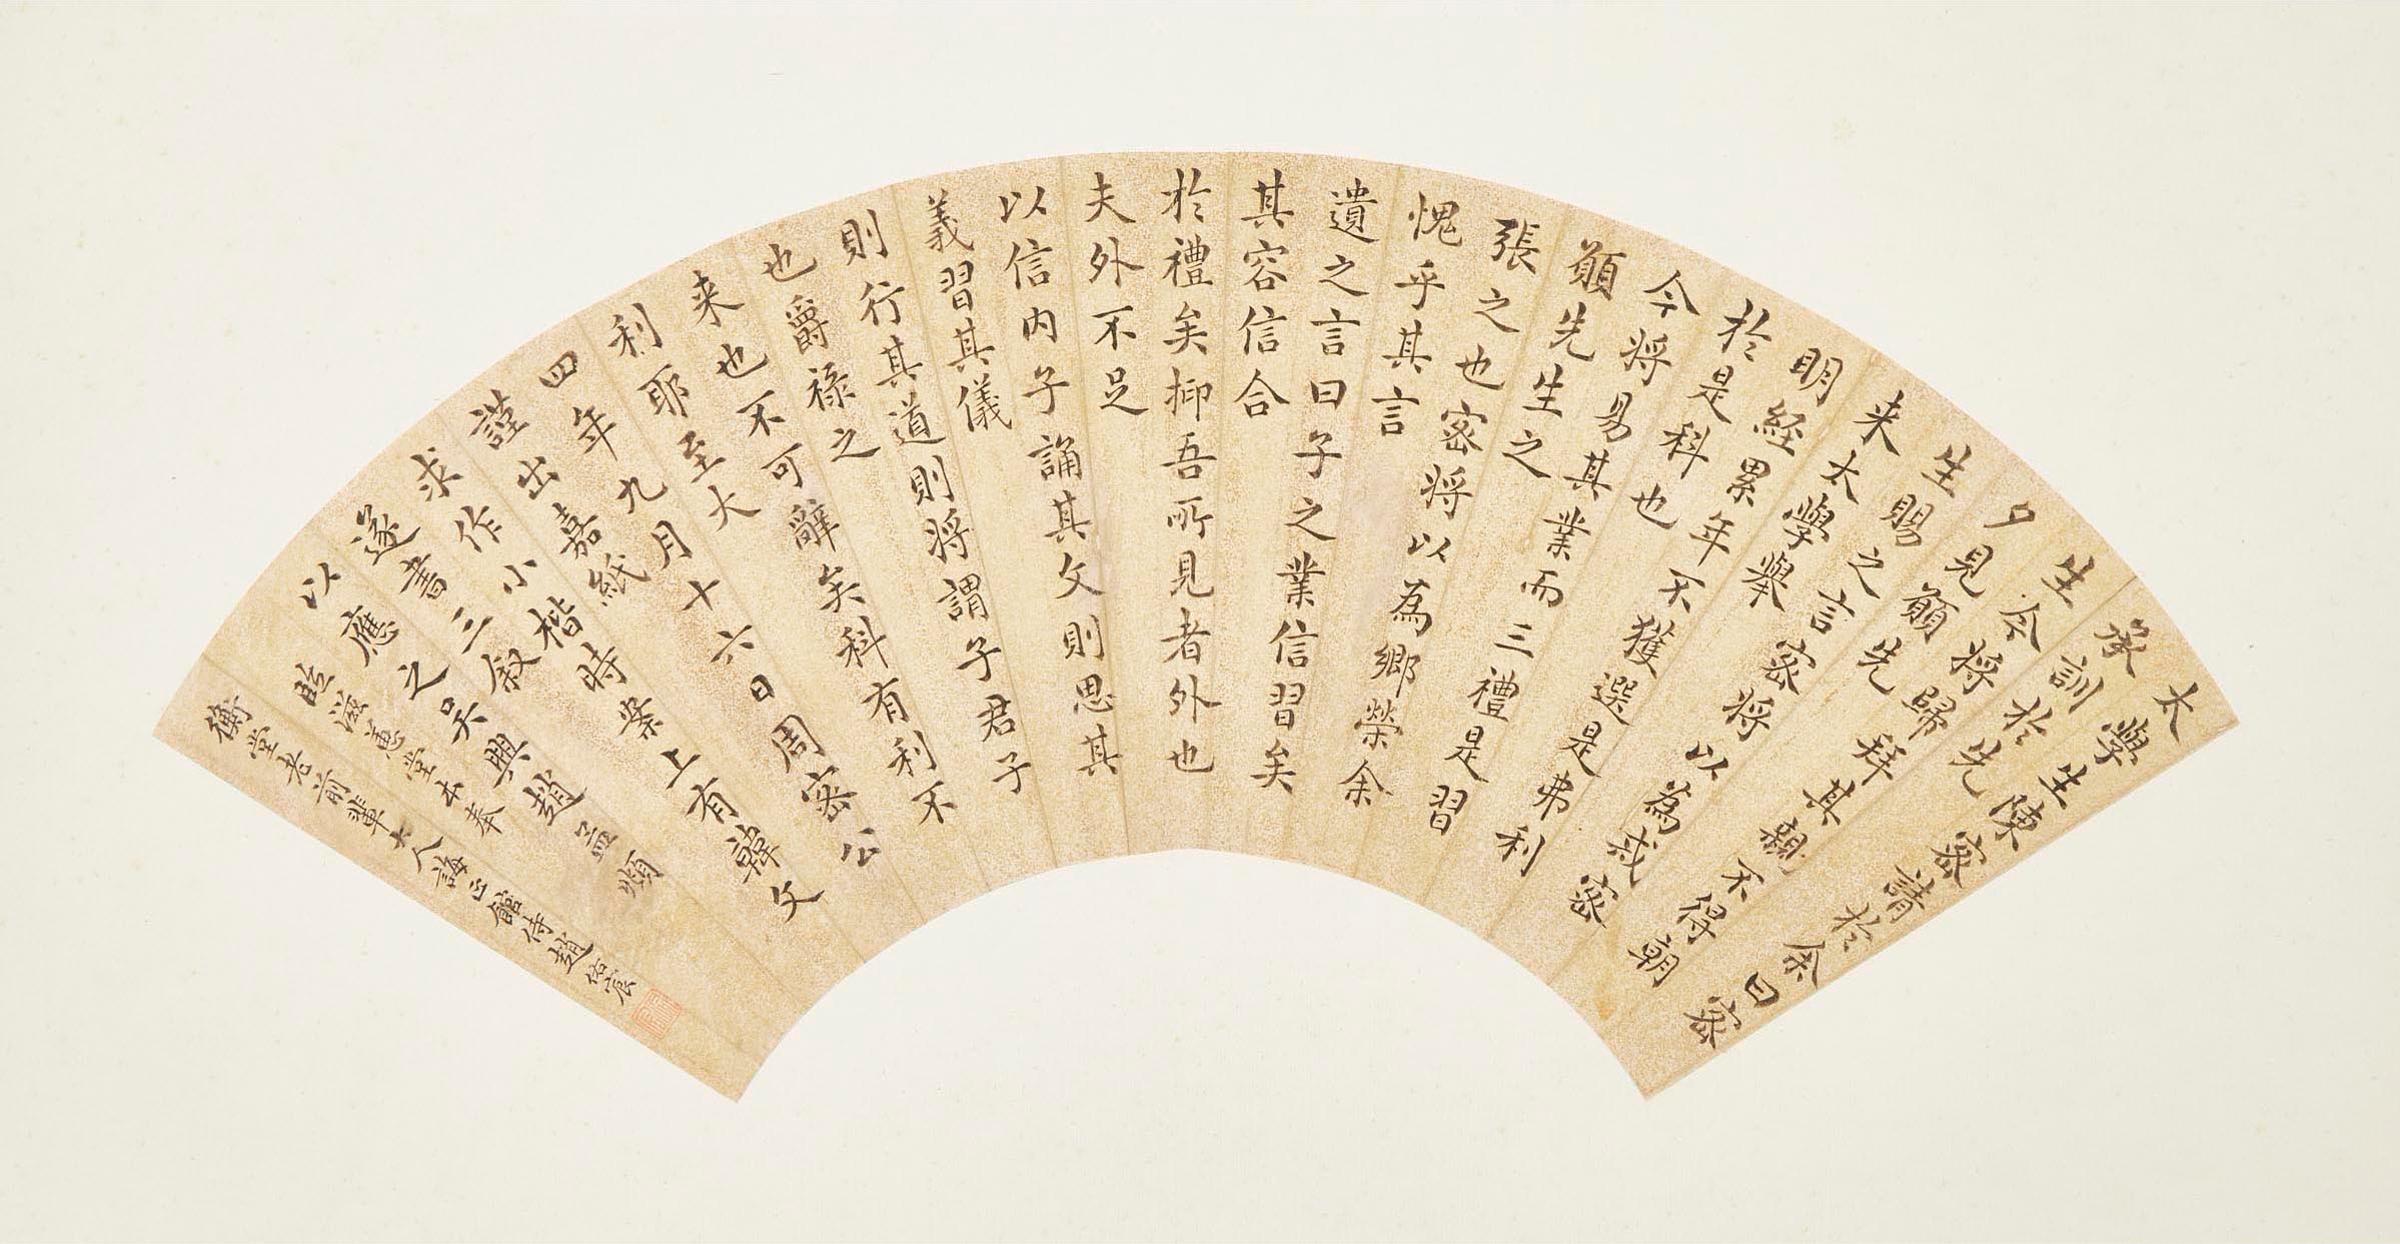 太學生陳密請於余曰密
承訓於先
生今将歸拜其親不得朝
夕見願先
生賜之言密将以為戒密
来太學舉
明経累年不獲選是弗利
於是科也
今将易其業而三禮是習
願先生之
張之也密将以為鄉榮余
愧乎其言
遺之言曰子之業信習矣
其容信合
於禮矣抑吾所見者外也
夫外不足
以信内子誦其文則思其
義習其儀
則行其道則将謂子君子
也爵祿之
来也不可辭矣科有利不
利耶至大
四年九月十六日周密公
謹出嘉紙
求作小楷時案上有韓文
遂書三敘
以應之吴興趙孟頫
臨滋蕙堂本奉
衡堂老前輩大人誨正館侍趙佑宸